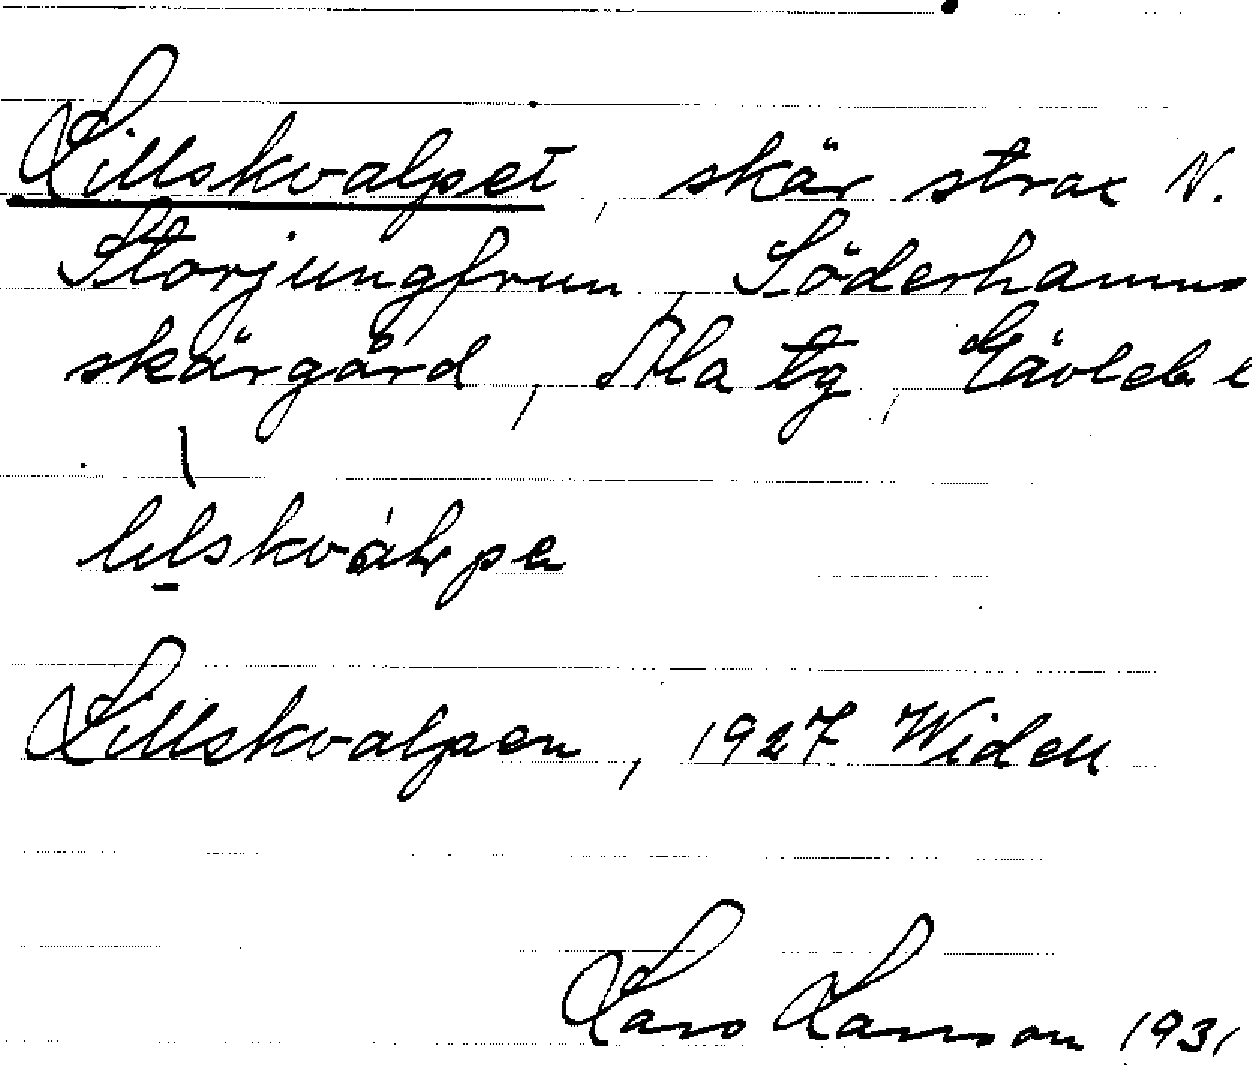 Lillskvalpet, skär strax N.
Storjungfrun, Söderhamns
skärgård, Ala tg, Gävleb. l
Lillskvalpen, 1927 Widell
Lars Larsson 1931